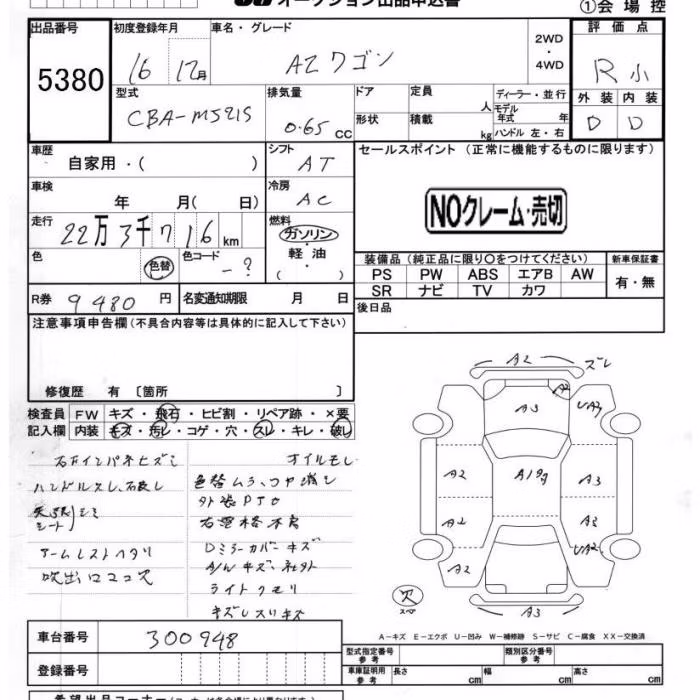 オークション出品申込書
①会場控
出品番号
5380
初度登録年月
16 12月
車名・グレード
AZワゴン
2WD
・
4WD
評価点
R小
外装 内装
D D
型式
CBA-MJ21S
排気量
0.65 CC
ドア
形状
定員
人
積載
kg
ディーラー・並行
モデル
年式 年
ハンドル 左・右
車歴
自家用・( )
シフト
AT
セールスポイント (正常に機能するものに限ります)
NOクレーム・売切
車検
年 月( 日)
冷房
AC
走行
22万3千716km
燃料
ガソリン
・
軽油
( )
色
色替
色コード
-?
装備品 (純正品に限り○をつけてください)
新車保証書
PS PW ABS エアB AW
SR ナビ TV カワ
有・無
R券 9480 円
名変通知期限 月 日
後日品
注意事項申告欄(不具合内容等は具体的に記入して下さい)
修復歴 有 〔箇所 〕
検査員
記入欄
FW キズ・飛石・ヒビ割・リペア跡・×要
内装 キズ・汚レ・コゲ・穴・スレ・キレ・破レ
オイルモレ
ハンドルスレ
シート
色替ムラ、ツヤ
アームレストヘタリ
Dミラーカバーキズ
ライトクモリ
キズ
A2
ズレ
A2
A3
UA3
A2
A3
A2
A3
UA2
A2
A3
欠
スペア
A-キズ E-エクボ U-凹み W-補修跡 S-サビ C-腐食 XX-交換済
車台番号
300948
登録番号
型式指定番号
参考
類別区分番号
参考
車庫証明用
参考
長さ cm
幅 cm
高さ cm
希望出品コーナー